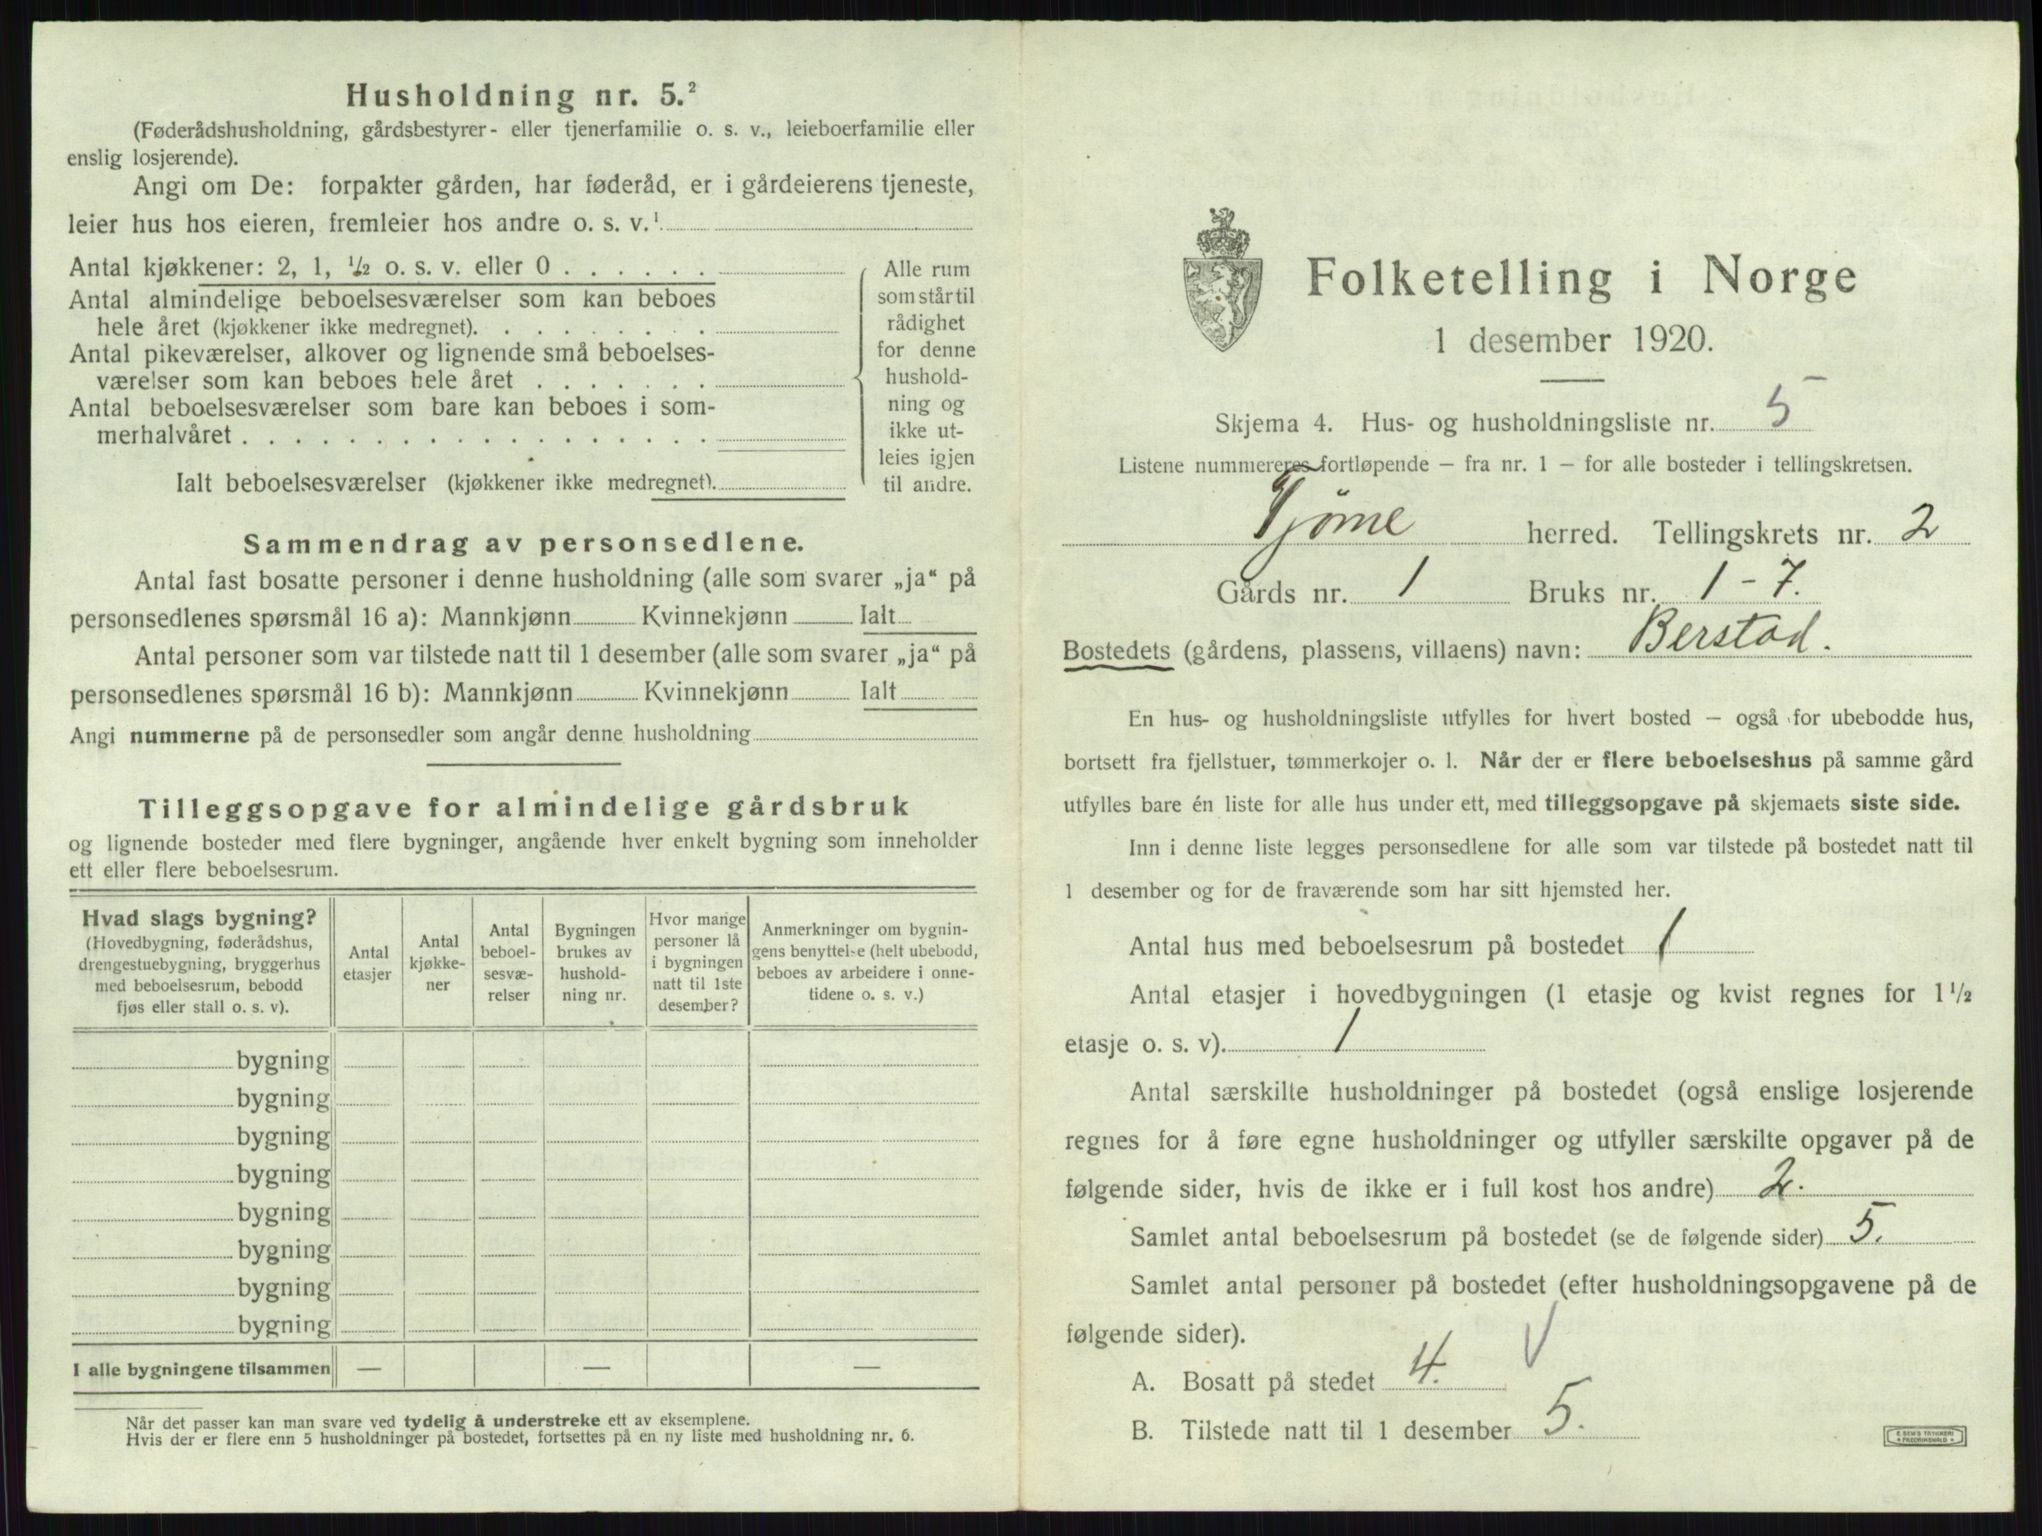 Husholdning nr. 5.²
(Føderådshusholdning, gårdsbestyrer- eller tjenerfamilie o. s. v., leieboerfamilie eller
enslig losjerende).
Angi om De: forpakter gården, har føderåd, er i gårdeierens tjeneste,
leier hus hos eieren, fremleier hos andre o. s. v.¹
Antal kjøkkener: 2, 1, ½ o. s. v. eller 0 . . . . . .
Antal almindelige beboelsesværelser som kan beboes
hele året (kjøkkener ikke medregnet). . . . . . . . .
Antal pikeværelser, alkover og lignende små beboelses-
værelser som kan beboes hele året . . . . . . .
Antal beboelsesværelser som bare kan beboes i som-
merhalvåret . . . . . . . . . . . . . . . . . .
Ialt beboelsesværelser (kjøkkener ikke medregnet).
Alle rum
som står til
rådighet
for denne
hushold-
ning og
ikke ut-
leies igjen
til andre.
Sammendrag av personsedlene.
Antal fast bosatte personer i denne husholdning (alle som svarer „ja“ på
personsedlenes spørsmål 16 a): Mannkjønn Kvinnekjønn Ialt
Antal personer som var tilstede natt til 1 desember (alle som svarer „ja“ på
personsedlenes spørsmål 16 b): Mannkjønn Kvinnekjønn Ialt
Angi nummerne på de personsedler som angår denne husholdning
Tilleggsopgave for almindelige gårdsbruk
og lignende bosteder med flere bygninger, angående hver enkelt bygning som inneholder
ett eller flere beboelsesrum.
Hvad slags bygning?
(Hovedbygning, føderådshus,
drengestuebygning, bryggerhus
med beboelsesrum, bebodd
fjøs eller stall o. s. v).
Antal
etasjer
Antal
kjøkke-
ner
Antal
beboel-
sesvæ-
relser
Bygningen
brukes av
hushold-
ning nr.
Hvor mange
personer lå
i bygningen
natt til 1ste
desember?
Anmerkninger om bygnin-
gens benyttelse (helt ubebodd,
beboes av arbeidere i onne-
tidene o. s. v.)
bygning
bygning
bygning
bygning
bygning
bygning
bygning
bygning
I alle bygningene tilsammen — — —
Når det passer kan man svare ved tydelig å understreke ett av eksemplene.
Hvis der er flere enn 5 husholdninger på bostedet, fortsettes på en ny liste med husholdning nr. 6.
Folketelling i Norge
1 desember 1920.
Skjema 4. Hus- og husholdningsliste nr. 5
Listene nummereres fortløpende – fra nr. 1 – for alle bosteder i tellingskretsen.
Tjøme herred. Tellingskrets nr. 2
Gårds nr. 1 Bruks nr. 1-7.
Bostedets (gårdens, plassens, villaens) navn: Berstad.
En hus- og husholdningsliste utfylles for hvert bosted – også for ubebodde hus,
bortsett fra fjellstuer, tømmerkojer o. l. Når der er flere beboelseshus på samme gård
utfylles bare én liste for alle hus under ett, med tilleggsopgave på skjemaets siste side.
Inn i denne liste legges personsedlene for alle som var tilstede på bostedet natt til
1 desember og for de fraværende som har sitt hjemsted her.
Antal hus med beboelsesrum på bostedet 1
Antal etasjer i hovedbygningen (1 etasje og kvist regnes for 1½
etasje o. s. v). 1
Antal særskilte husholdninger på bostedet (også enslige losjerende
regnes for å føre egne husholdninger og utfyller særskilte opgaver på de
følgende sider, hvis de ikke er i full kost hos andre) 2.
Samlet antal beboelsesrum på bostedet (se de følgende sider) 5.
Samlet antal personer på bostedet (efter husholdningsopgavene på de
følgende sider).
A. Bosatt på stedet 4. V
B. Tilstede natt til 1 desember 5.
E. SEM'S TRYKKERI
• FREDRIKSHALD •